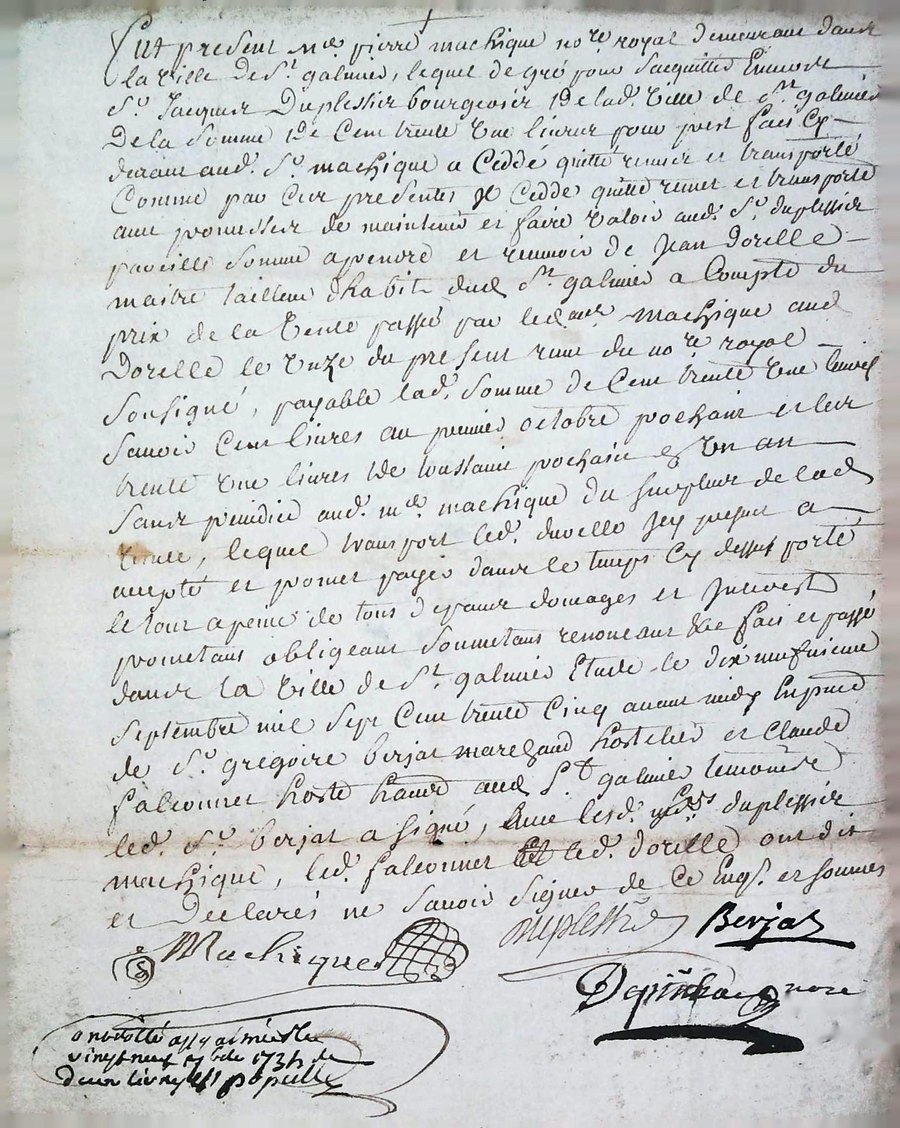 Fut present me pierre machique nore royal demeurant dans
la Ville de St galmier, lequel de gré pour sacquitter Envers
Sr Jacques Duplessier bourgeois de lad. Ville de St galmier
De la Somme de Cent trente Une livres pour prest fait Cy
devant aud. Sr. machique a Ceddé quitté remis et transporté
Comme par Ces presentes Il Cedde quitte remet et transporte
avec promesse de maintenir et faire Valoir aud. Sr. duplessier
pareille Somme a prendre et recevoir de Jean Dorelle
maitre tailleur dhabit dud St. galmier a Compte du
prix de la Vente passée par led me machique aud
Dorelle le Unze du present reçue du nore royal
Sousigné, payable lad. Somme de Cent trente Une livres
Savoir Cent livres au premier octobre prochain et les
trente Une livres de toussaint prochaine En Un an
Sans prejudice aud. me. machique du Surplus de lad
Vente, lequel transport led. dorelle Icy present a
accepté et promet payer dans le temps Cy dessus porté
le tout a peine de tous depans domages et Interest
prometans obligeant Soumetans renonceant &c fait et passé
dans la Ville de St. galmier Etude le dix neufvieme
Septembre mil Sept Cent trente Cinq avant midy En presence
de Sr. gregoire berjat marchand hostelier et Claude
falconnet hoste aud St galmier temoins
led. Sr. berjat a signé, avec lesd. Srs duplessier
machique, led. falconnet et led. dorelle ont dit
et Declarés ne Savoir Signer de Ce Enqs. et sommés
Machique
Duplessie
Berjat
nore
vingt neuf 7bre 1735
deux livres